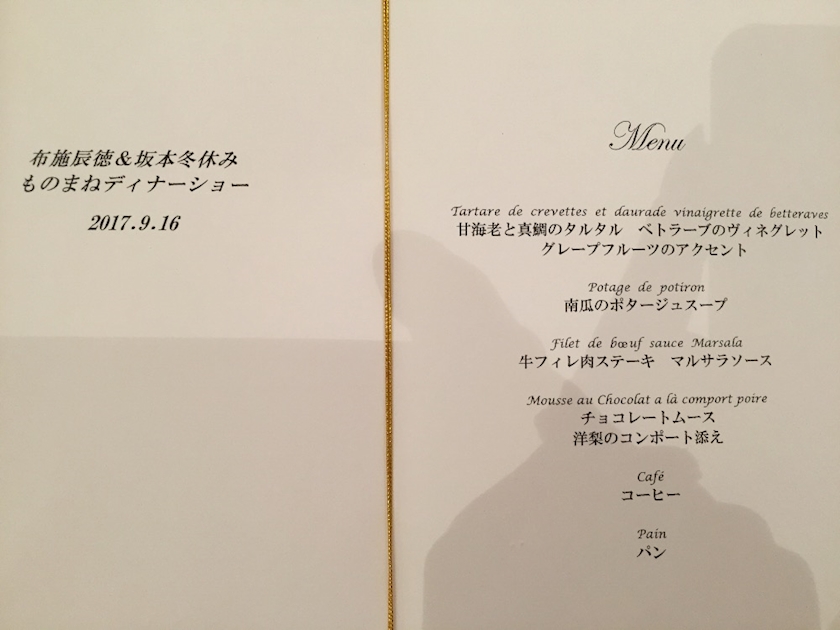 布施辰徳&坂本冬休み
ものまねディナーショー
2017.9.16
Menu
Tartare de crevettes et daurade vinaigrette de betteraves
甘海老と真鯛のタルタル ベトラーブのヴィネグレット
グレープフルーツのアクセント
Potage de potiron
南瓜のポタージュスープ
Filet de bœuf sauce Marsala
牛フィレ肉ステーキ マルサラソース
Mousse au Chocolat a là comport poire
チョコレートムース
洋梨のコンポート添え
Café
コーヒー
Pain
パン